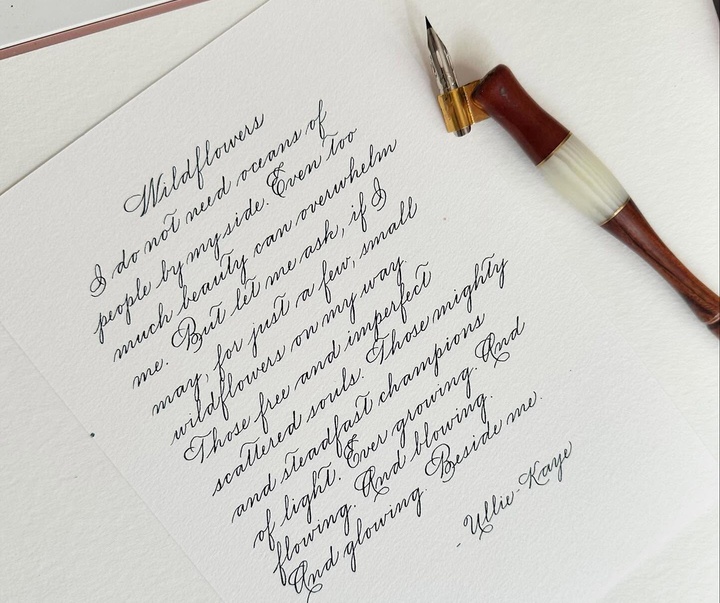 Wildflowers
I do not need oceans of
people by my side. Even too
much beauty can overwhelm
me. But let me ask, if I
may, for just a few, small
wildflowers on my way.
Those free and imperfect
scattered souls. Those mighty
and steadfast champions
of light. Ever growing. And
flowing. And blowing.
And glowing. Beside me.
- Ullie-Kaye